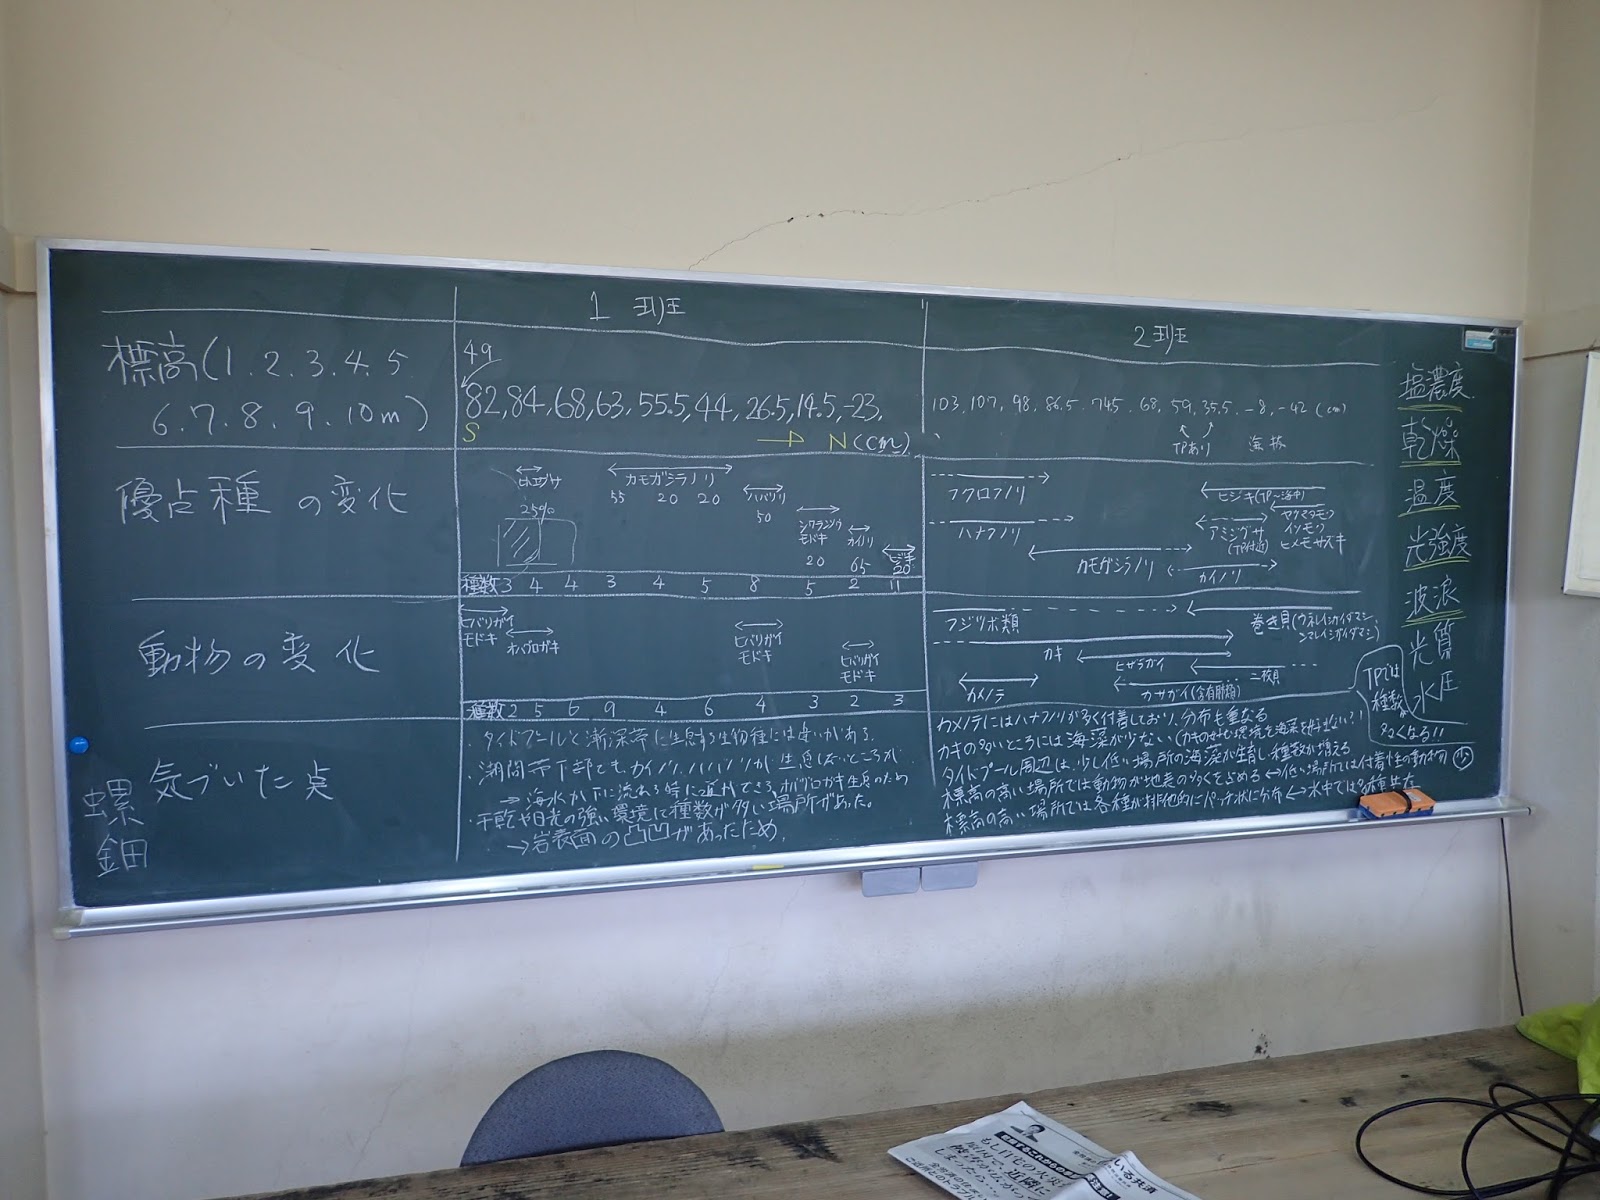 1班
2班
標高(1.2.3.4.5
6.7.8.9.10m)
49
82,84,68,63,55.5,44,26.5,14.5,-23,
S
N(cm)
103,107,98,86.5,74.5,68,59,35.5,-8,-42(cm)
TPあり
優占種の変化
25%
カモガシラノリ
55 20 20
ハバノリ
50
モドキ
20
カイノリ
65
ヒジキ
20
種数 3 4 4 3 4 5 8 5 2 11
フクロフノリ
ハナフノリ
カモガシラノリ
カイノリ
ヒジキ(TP~海中)
アミジグサ
(TP付近)
ヤツマタモク
イソモク
ヒメモサズキ
動物の変化
ヒバリガイ
モドキ
オハグロガキ
ヒバリガイ
モドキ
ヒバリガイ
モドキ
種数 2 5 6 9 4 6 4 3 2 3
フジツボ類
カキ
ヒザラガイ
カメノテ
カサガイ
二枚貝
巻き貝
気づいた点
・タイドプールと漸深帯に生息する生物種には違いがある。
・潮間帯下部でも、カイノリ、ハバノリが生息しないところが
→海水が下に流れる時に道ができる、オハグロガキ生息のため
・干乾や日光の強い環境に種数が多い場所があった。
→岩表面の凸凹があったため。
カメノテにはハナフノリが多く付着しており、分布も重なる
カキの多いところには海藻が少ない
タイドプール周辺は、少し低い場所の海藻が生育し、種数が増える
標高の高い場所では動物が地表の多くを占める↔低い場所では付着性の動物 少
標高の高い場所では各種が排他的にパッチ状に分布↔水中では多種共存
TPは
種数
多くなる!!
塩濃度
乾燥
温度
光強度
波浪
光質
水圧
螺
鈿
もし自宅の火災
近隣に
しましたら
いる共済